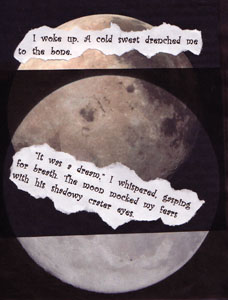 I woke up. A cold sweat drenched me
to the bone.
"It was a dream," I whispered, gasping
for breath. The moon mocked my fears
with his shadowy crater eyes.